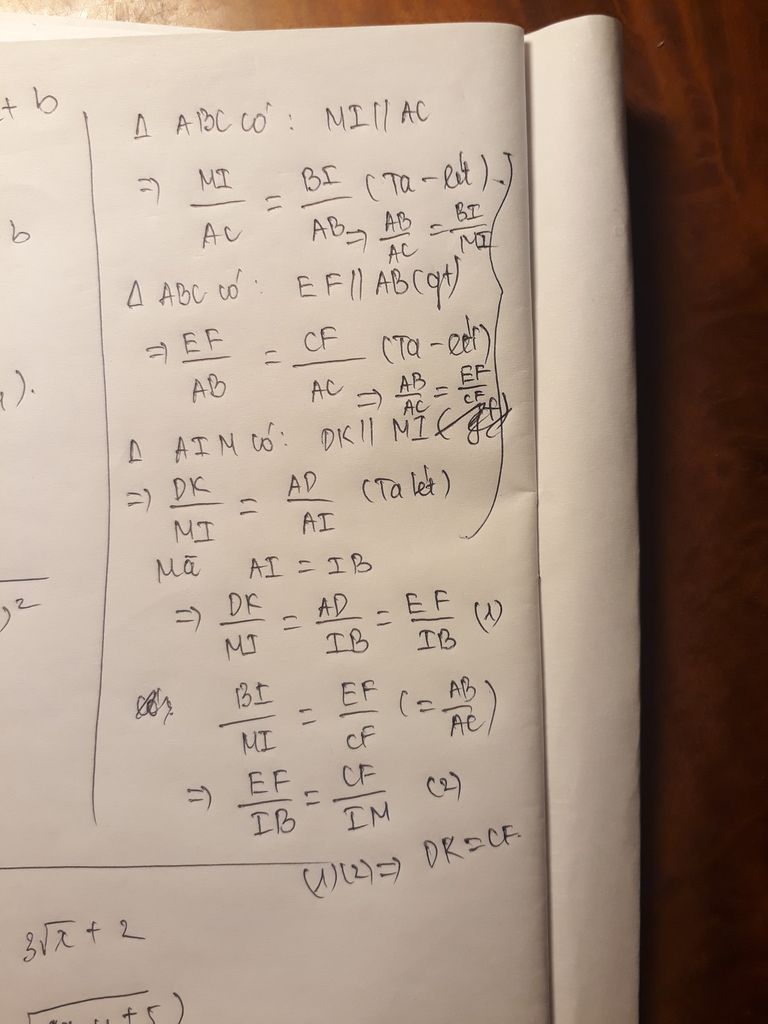 + b
b
).
)²
Δ ABC có: MI // AC
=> MI/AC = BI/AB (Ta-lét).
=> AB/AC = BI/MI
Δ ABC có: EF // AB (gt)
=> EF/AB = CF/AC (Ta-lét)
=> AB/AC = EF/CF
Δ AIM có: DK // MI
=> DK/MI = AD/AI (Ta lét)
Mà AI = IB
=> DK/MI = AD/IB = EF/IB (1)
BI/MI = EF/CF (= AB/AC)
=> EF/IB = CF/IM (2)
(1)(2) => DK = CF.
3√x + 2
+ 5)